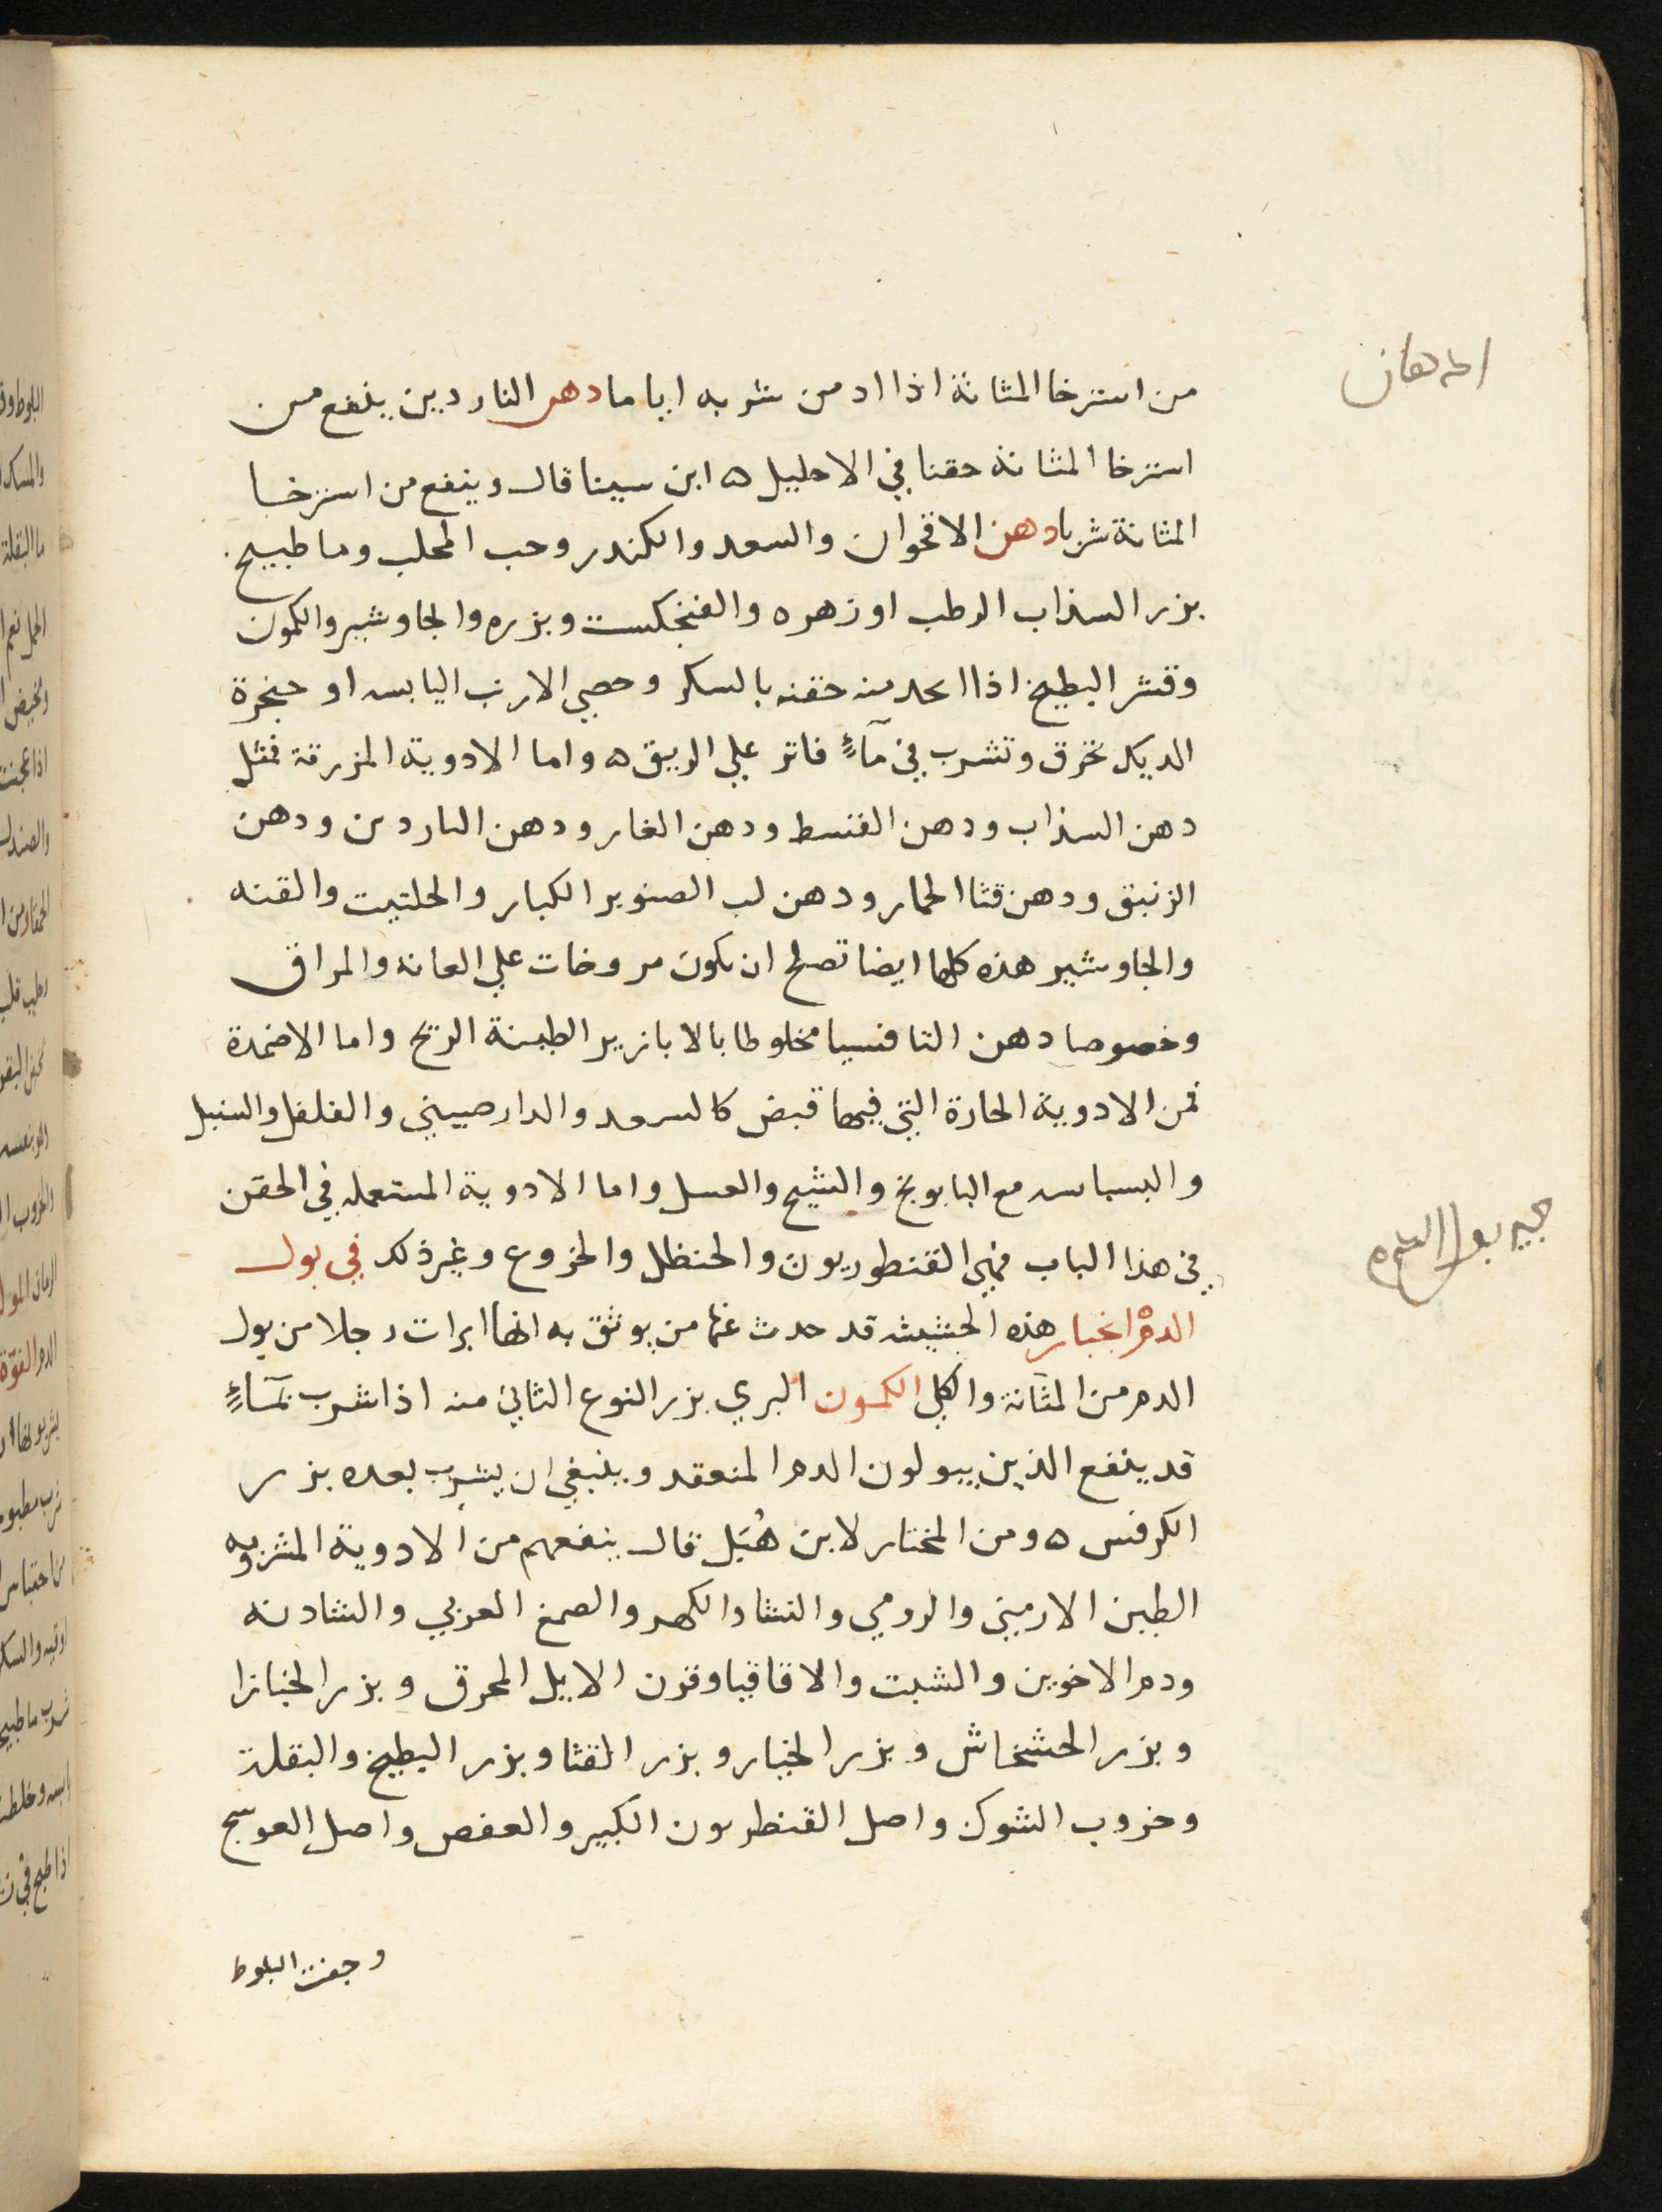 من استرخا المثانة اذا ادمن شربه اياما دهن الناردين ينفع من
استرخا المثانة حقنا في الاحليل ه ابن سينا قال وينفع من استرخا
المثانة شربا دهن الاقحوان والسعد والكندر وحب المحلب وما طبيخ
بزر السذاب الرطب او زهره والفنجكست وبزره والجاوشير والكمون
وقشر البطيخ اذا منه حقنه بالسكر وحصي الارنب اليابسه او حنجرة
الديك تحرق وتشرب في مآءٍ فاتر علي الريق ه واما الادوية المزرقة فمثل
دهن السذاب ودهن القسط ودهن الغار ودهن الناردين ودهن
الزنبق ودهن قثا الحمار ودهن لب الصنوبر الكبار والحلتيت والقنه
والجاوشير هذه كلها ايضا تصلح ان تكون مروخات علي العانه والمراق
وخصوصا دهن الثافسيا مخلوطا بالابازير الطيبة الريح واما الاضمدة
فمن الادوية الحارة التي فيها قبض كالسعد والدارصيني والفلفل والسنبل
والبسباسه مع البابونج والشيح والعسل واما الادوية المستعمله في الحقن
في هذا الباب فهي القنطوريون والحنظل والخروع وغير ذلك في بول
الدم انجبار هذه الحشيشه قد حدث عنها من يوثق به انها ابرات رجلا من بول
الدم من المثانة والكلي الكمون البري بزر النوع الثاني منه اذا شرب بمآءٍ
قد ينفع الذين يبولون الدم المنعقد وينبغي ان يشرب بعده بزر
الكرفس ه ومن المختار لابن هُبَل قال ينفعهم من الادوية المشروبه
الطين الارميني والرومي والنشا والكهر والصمغ العربي والشادنه
ودم الاخوين والشبت والاقاقيا وقرن الايل المحرق وبزر الخبازا
وبزر الخشخاش وبزر الخيار وبزر القثا وبزر البطيخ والبقلة
وخروب الشوك واصل القنطريون الكبير والعفص واصل العوسج
وجفت البلوط